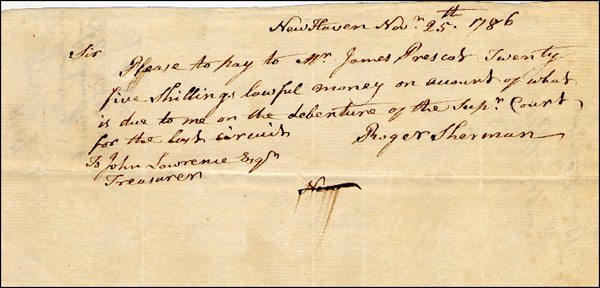 New Haven Novr. 25th. 1786
Sir
Please to pay to Mr. James Prescot Twenty
five Shillings lawful money on account of what
is due to me on the debenture of the Supr. Court
for the last circuit
Roger Sherman
To John Lawrence Esqr.
Treasurer
New